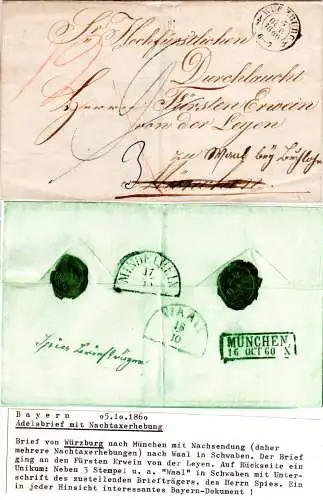 WÜRZBURG
5
OCT
1860
6-7
Sr. Hochfürstlichen
Durchlaucht
Herrn Fürsten Erwein
von der Leyen
zu Waal bey Buchloe
3
MINDELHEIM
17
10
WAAL
18
10
Spies Briefträger
MÜNCHEN
16 OCT 60 X
Bayern o5.1o.186o
Adelsbrief mit Nachtaxerhebung
Brief von Würzburg nach München mit Nachsendung (daher
mehrere Nachtaxerhebungen) nach Waal in Schwaben. Der Brief
ging an den Fürsten Erwein von der Leyen. Auf Rückseite ein
Unikum: Neben 3 Stempel u. a. "Waal" in Schwaben mit Unter-
schrift des zustellenden Briefträgers, des Herrn Spies. Ein
in jeder Hinsicht interessantes Bayern-Dokument !